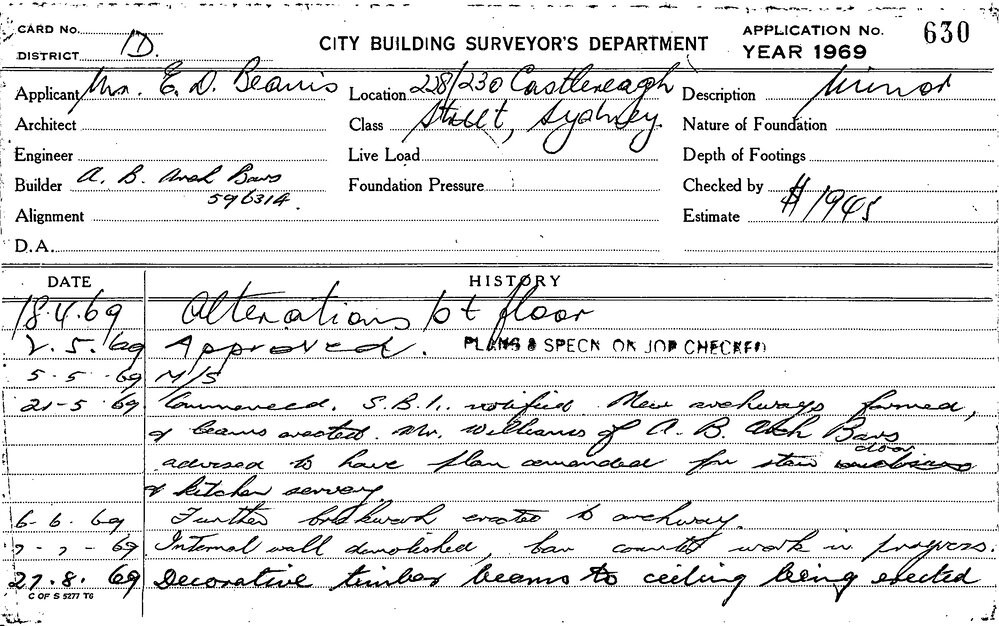 CARD No.
DISTRICT 1D.
CITY BUILDING SURVEYOR'S DEPARTMENT
APPLICATION No. 630
YEAR 1969
Applicant Mr. E. D. Beamis
Location 228/230 Castlereagh
Description Minor
Architect
Class Street, Sydney.
Nature of Foundation
Engineer
Live Load
Depth of Footings
Builder A. B. Arch Bars
596314.
Foundation Pressure
Checked by
Alignment
Estimate $1945
D.A.
DATE HISTORY
18.4.69 Alterations 1st floor
2.5.69 Approved. PLANS & SPECN ON JOB CHECKED
5-5-69 N/S
21-5-69 Commenced. S.B.I. notified. New archways formed,
& beams erected. Mr. Williams of A. B. Arch Bars
advised to have plan amended for stair door
& kitchen servery
6-6-69 Further brickwork erected to archway.
7-7-69 Internal wall demolished, bar counter work in progress.
27.8.69 Decorative timber beams to ceiling being erected
C OF S 5277 TG